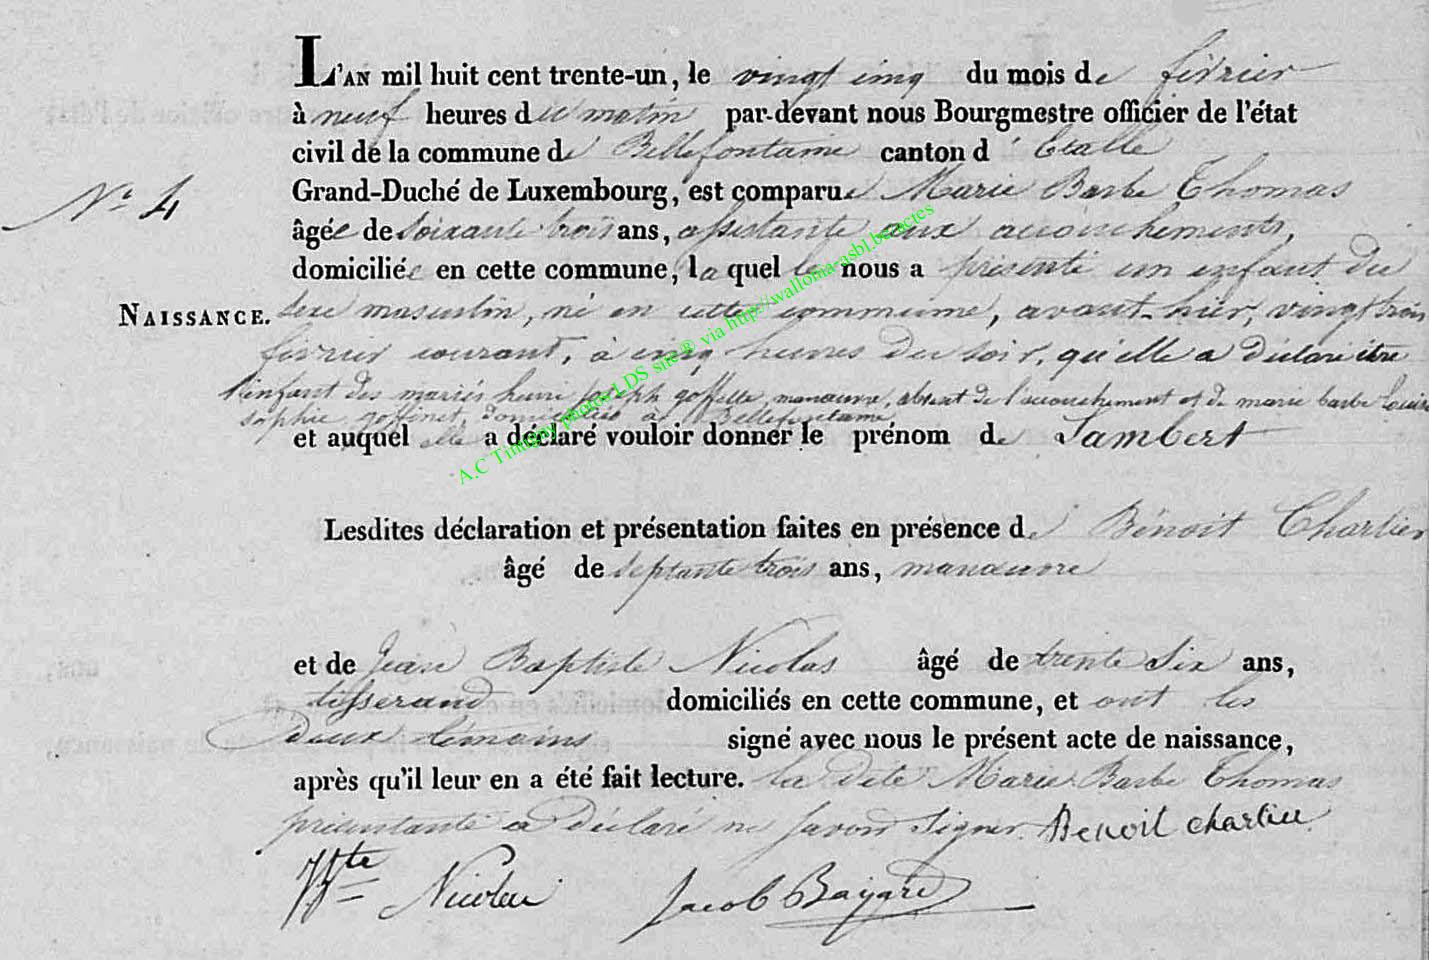 L'AN mil huit cent trente-un, le vingt cinq du mois de février
à neuf heures du matin par-devant nous Bourgmestre officier de l'état
civil de la commune de Bellefontaine canton d'Etalle
Grand-Duché de Luxembourg, est comparue Marie Barbe Thomas
N° 4
âgée de soixante trois ans, assistante aux accouchements,
domiciliée en cette commune, laquelle nous a présenté un enfant du
NAISSANCE.
sexe masculin, né en cette commune, avant-hier, vingt trois
février courant, à cinq heures du soir, qu'elle a déclaré être
l'enfant des mariés henri joseph goffette, manœuvre, absent de l'accouchement et de marie barbe louise
sophie goffinet, domiciliés à Bellefontaine
et auquel elle a déclaré vouloir donner le prénom de Lambert
A.C Tintigny photos LDS site ® via http://wallonia-asbl.be/actes
Lesdites déclaration et présentation faites en présence de Bénoit Charlier
âgé de septante trois ans, manœuvre
et de Jean Baptiste Nicolas âgé de trente six ans,
tisserand domiciliés en cette commune, et ont les
deux témoins signé avec nous le présent acte de naissance,
après qu'il leur en a été fait lecture. la dite Marie Barbe Thomas
présentante a déclaré ne savoir signer. Benoit charlier
Nicolas Jacob Bayard